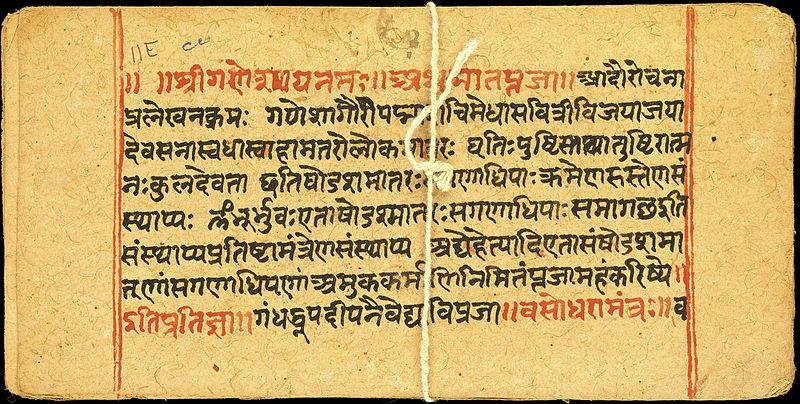 ॥E cc
॥ ॥श्रीगणेशायनमः॥अथ मातृपूजा॥आदौरोचना
प्रलेखनक्रमः गणेशगौरीपद्मा शचीमेधासवित्रीविजयाजया
देवसेनास्वधास्वाहामातरोलोकमातरः धृतिःपुष्टिस्तथातुष्टिरात्म
नःकुलदेवता इतिषोडशमातरः गणाधिपाःक्रमेणहस्तेणसं
स्थाप्यः ॐभूर्भुवःएताषोडशमातरःसगणाधिपाःसमागछइति
संस्थाप्यप्रतिष्ठामंत्रेणसंस्थाप्य अद्येहेत्यादिएतासंषोडशमा
तृणांसगणाधिपाणांअमुककर्माणिनिमितंपूजामहंकरिष्ये॥
इतिप्रतिज्ञा॥गंधपुष्पदीपनैवेद्य विपूजा॥वसोधरामंत्रः॥व